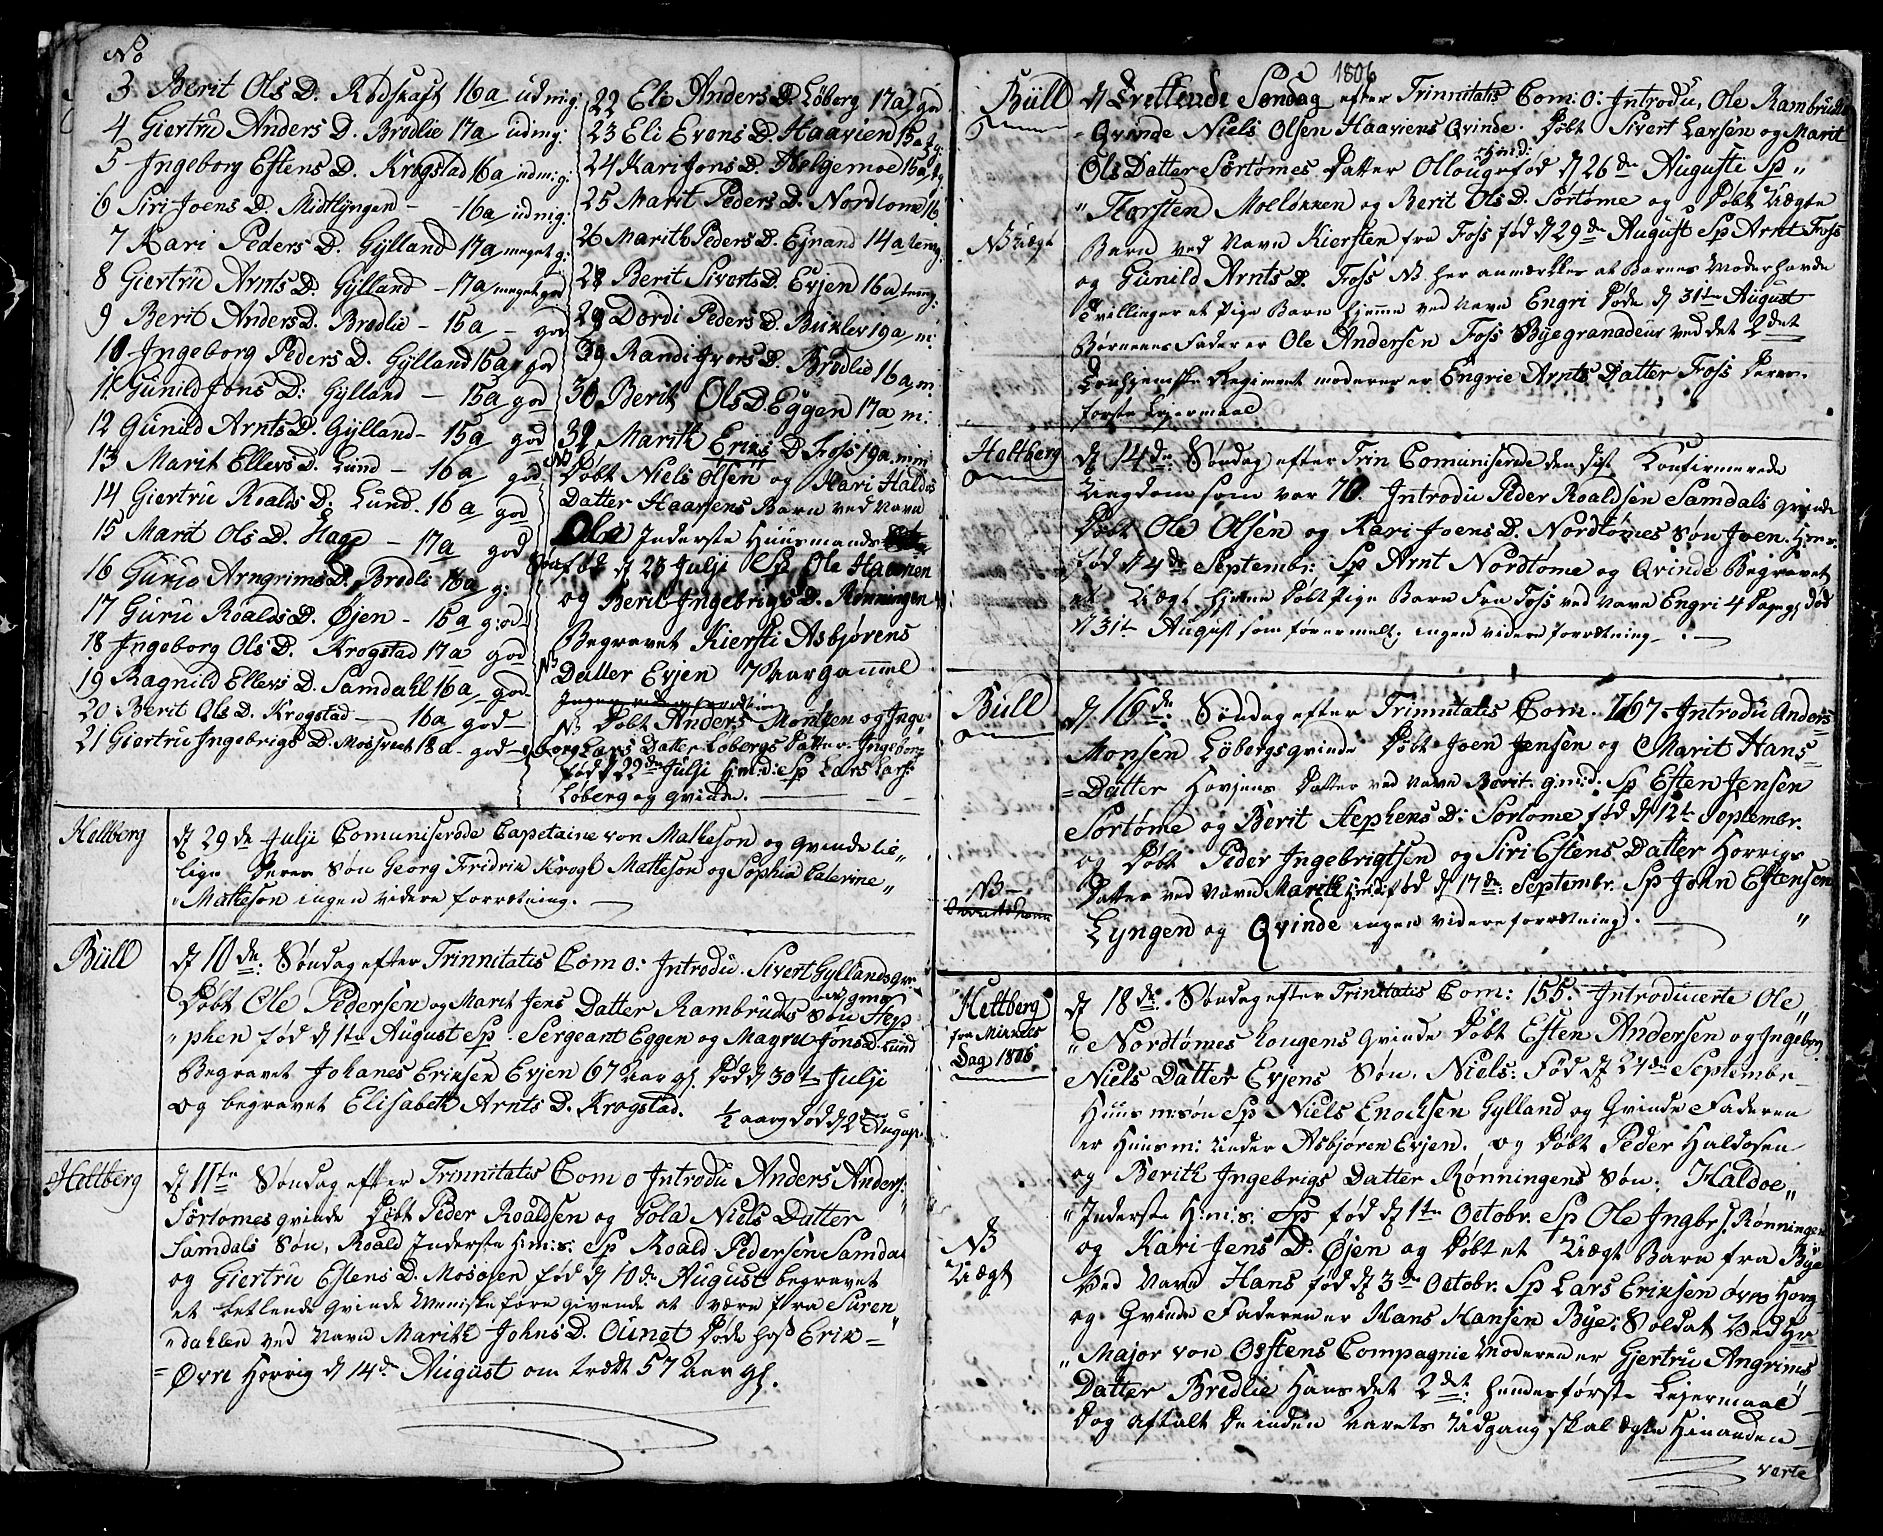 No
3 Berit Ols D. Rødskaft 16a udmig:
4 Giertru Anders D. Brødlie 17a udmig:
5 Ingeborg Estens D. Krogstad 16a udmig:
6 Siri Joens D. Midtlyngen - 16a udmig:
7 Kari Peders D. Gylland 17a meget g:
8 Giertru Arnts D. Gylland - 17a meget god
9 Berit Anders D. Brødlie - 15a - god
10 Ingeborg Peders D. Gylland 15a god
11 Gunild Jons D: Gylland - 15a god
12 Gunild Arnts D. Gylland - 15a god
13 Marit Ellevs D. Lund - 16a god
14 Giertru Roalds D. Lund. 16a god
15 Marit Ols D. Hage - 17a god
16 Gurjo Arngrims D. Brødli 16a g:
17 Guru Roalds D. Øjen - 15a g:od
18 Ingeborg Ols D. Krogstad 17a god
19 Ragnild Ellevs D. Samdahl 16a god
20 Berit Ols D. Krogstad - 16a god
21 Giertru Ingebrigs D. Mosøreet 18a - god
22 Eli Anders D. Løberg 17a god
23 Eli Evens D. Haavien 15a g:
24 Kari Jons D. Helgemoe 15a g
25 Marit Peders D. Nordtome 16
26 Marith Peders D. Ejnand 14a temg.
28 Berit Siverts D. Evjen 16a temg:
29 Dordi Peders D. Buxlev 19a m:
30 Randi Ivers D. Brødlie 16a m.
30 Berit Ols D. Eggen 17a m:
32 Marith Eriks D. Foss 19a. min
NB Døbt Niels Olsen og Kari Haldos
Datter Haavens Barn ved Navn
Ole Inderste Huusmands
Søn fød d 23 Julji Sp Ole Haamen
og Berit Ingebrigs D. Rønningen
Begravet Kiersti Asbjørens
NB Datter Evjen 7 Aar gammel
Ingen videre forretn
NB Døbt Anders Montsen og Inge
borg Lars Datter Løbergs Datter Ingeborg
fød d 22de Julji Hm:d: Sp Lars Lars:
Løberg og qvinde.
Heltberg d 29de Julji Comuniserede Capetaine von Matheson og qvinde lie„
lige Deres Søn Georg Fridrik Krogh Matheson og Sophia Caterine„
„Matheson ingen videre forretning.
Büll d 10de: Søndag efter Trinnitatis Com 0: Introdu. Sivert Gyllands qv:
Døbt Ole Pedersen og Marit Jens Datter Rambruds Søn Step
„phen fød d 1te August Sp. Sergeant Eggen og Magret Jons D. Lund
Begravet Johanes Eriksen Evjen 67 Aar gl. Død d 30te Julji
og begravet Elisabeth Arnts D. Krogstad. ½ aar g død d 2de August
Heltberg d 11te Søndag efter Trinnitatis Com 0 Introdu Anders Anders:
Sørtomes qvinde Døbt Peder Roaldsen og Gola Niels Datter
Samdals Søn, Roald Inderste Hm:s: Sp Roald Pedersen Samdal
og Giertru Estens D. Mosøsen fød d 10de August begravet
et betlende qvinde Menniske foregivende at være fra Suren„
„dahlen ved Navn Marith Johns D. Ounet Døde hos Erik
Øvre Horrig d 14de August om trætt 57 Aar gl.
1806
Büll d Trettende Søndag efter Trinnitatis Com: 0: Introdu, Ole Rambruds
Qvinde Niels Olsen Haaviens Qvinde. Døbt Sivert Larsen og Marit
Ols Datter Sørtømes Datter Ollaug fød d 26de Augusti Sp„
„Torsten Moeløkken og Berit Ols D. Sørtøme og Døbt Uægte
NB Uægt Barn ved Navn Kiersten fra Foss fød d 29de August Sp Arnt Foss
og Gunild Arnts D. Foss NB. her anmærkkes at Barnes Moder havde
Tvillinger et Pige Barn hjemme ved Navn Engri døde d 31te August
Børnenes Fader er Ole Andersen Foss Byegranadeur ved det 2det
Tronhjemske Regiment moderen er Engrie Arnts Datter Foss Deres
første Lejermaal
Heltberg d 14de: Søndag efter Trin Comuniserede den sidst Konfirmerede
Ungdom som var 70. Introdu Peder Roaldsen Samdals qvinde
Døbt Ole Olsen og Kari Joens D. Nordtømes Søn Joen. Hm:s.
fød d 4de Septembr: Sp Arnt Nordtøme og Qvinde Begravet
et Uægt hjemme Døbt Pige Barn fra Foss ved Navn Engri 4 Dage gl død
d 31te August som før ermelt; ingen videre forretning.
Büll d 16de: Søndag efter Trinnitatis Com. 167 Introdu Anders
Monsen Løbergs qvinde Døbt Joen Jensen og Marit Hans
Datter Hovjens Datter ved Navn Berit. g.m:d: Sp Esten Jensen
Sørtøme og Berit Stephens D: Sørtome fød d 12te Septembr.
og Døbt Peder Ingebrigtsen og Siri Estens Datter Horrigs
NB Datter ved Navn Marith Hm:d: fød d 17de: Septembr. Sp John Estensen
Lyngen og Qvinde ingen videre forretning.
Heltberg
fra Mikkels
Dag 1806
d 18de. Søndag efter Trinitatis Com: 155: Introducerte Ole„
„Nordtømes Laugens Qvinde Døbt Esten Andersen og Ingebrg
Niels Datter Evjens Søn, Niels: Fød d 27de Septembe
Huus m:søn Sp Niels Enochsen Gylland og Qvinde Faderen
er Huusm: Under Asbjøren Evjen. og Døbt Peder Haldosen
og Berith Ingebrigs Datter Rønningens Søn: Haldoe„
„Inderste H:m:s: Sp fød d 1te Octobr. Sp Ole Ingbr S. Rønningen
NB
Uægt
og Kari Jens D. Øjen og Døbt et Uægt Barn fra Bye
Ved Navn Hans fød d 3de Octobr. Sp Lars Eriksen øvre Horg
og Qvinde Faderen er Hans Hansen Bye: Soldat Ved Hr
„Major von Ostens Compagnie Moderen er Gjertru Angrims
Datter Brødlie Hans det 2det: hendes første Lejermaal
Dog aftalt De inden Aarets Udgang skal ægte Hinanden
verte